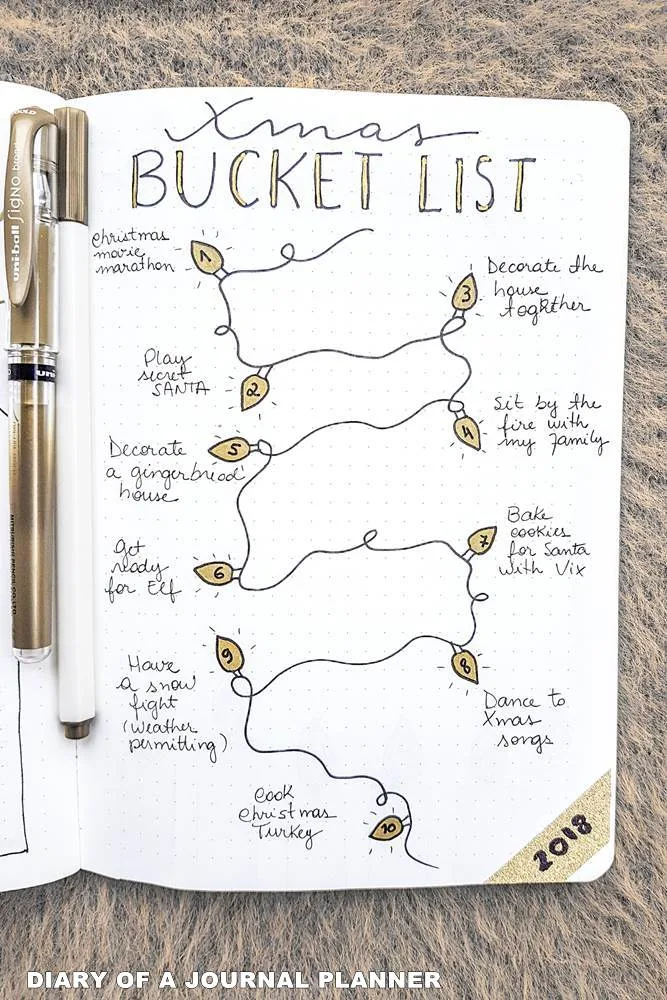 Xmas
BUCKET LIST
Christmas
movie
marathon
1
3
Decorate the
house
together
Play
secret
SANTA
2
Sit by the
fire with
my family
4
5
Decorate
a gingerbread
house
Bake
cookies
for Santa
with Vix
7
Get
ready
for Elf
6
9
Have
a snow
fight
(weather
permitting)
8
Dance to
Xmas
songs
Cook
Christmas
Turkey
10
2018
uni-ball SigNO broad
GOLD
uni
MITSUBISHI PENCIL CO., LTD
DIARY OF A JOURNAL PLANNER